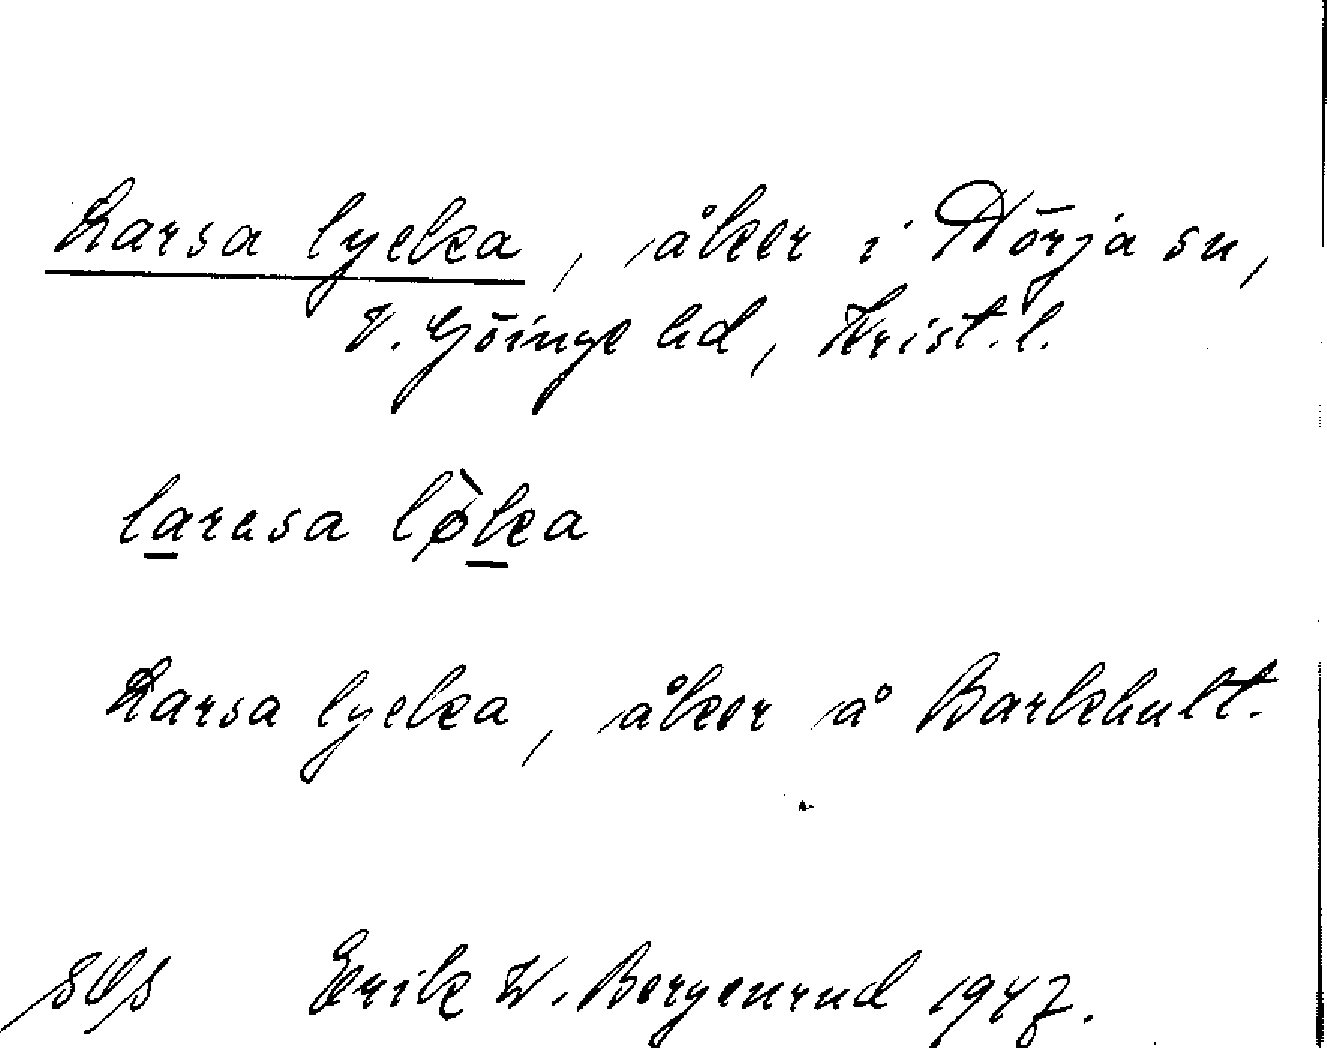 Larsa lycka, åker i Nörja sn,
V. Göinge hd, Krist. l.
larsa lø̀ka
Larsa lycka, åker å Barkhult.
Erik W. Bergenrud 1947.